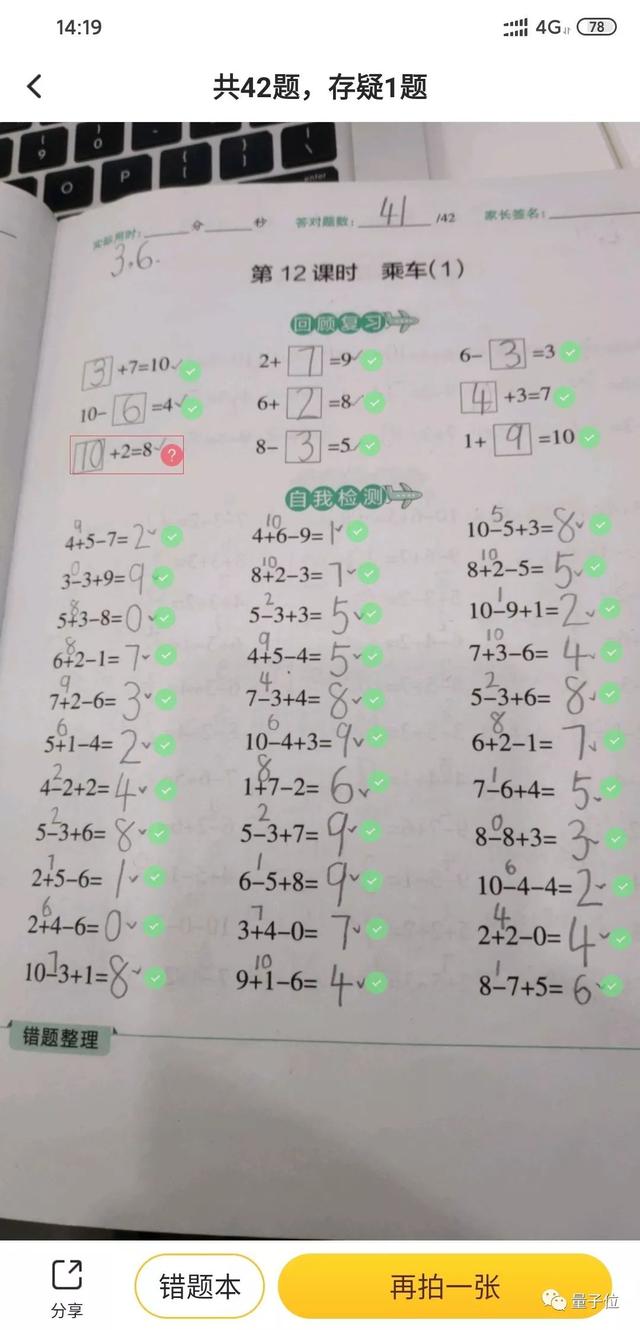 14:19 4G 78
共42题，存疑1题
9 0 { [ } ] | \
O P enter
实际用时: 分 秒 答对题数: 41 /42 家长签名:
3.6.
第12课时 乘车(1)
回顾复习
3 +7=10 2+ 7 =9 6- 3 =3
10- 6 =4 6+ 2 =8 4 +3=7
10 +2=8 ? 8- 3 =5 1+ 9 =10
自我检测
9 10 5
4+5-7=2 4+6-9=1 10-5+3=8
0 10 10
3-3+9=9 8+2-3=7 8+2-5=5
8 2 1
5+3-8=0 5-3+3=5 10-9+1=2
8 9 10
6+2-1=7 4+5-4=5 7+3-6=4
9 4 2
7+2-6=3 7-3+4=8 5-3+6=8
6 6 8
5+1-4=2 10-4+3=9 6+2-1=7
2 8 1
4-2+2=4 1+7-2=6 7-6+4=5
2 2 0
5-3+6=8 5-3+7=9 8-8+3=3
7 1 6
2+5-6=1 6-5+8=9 10-4-4=2
6 7 4
2+4-6=0 3+4-0=7 2+2-0=4
7 10 1
10-3+1=8 9+1-6=4 8-7+5=6
错题整理
分享 错题本 再拍一张 量子位